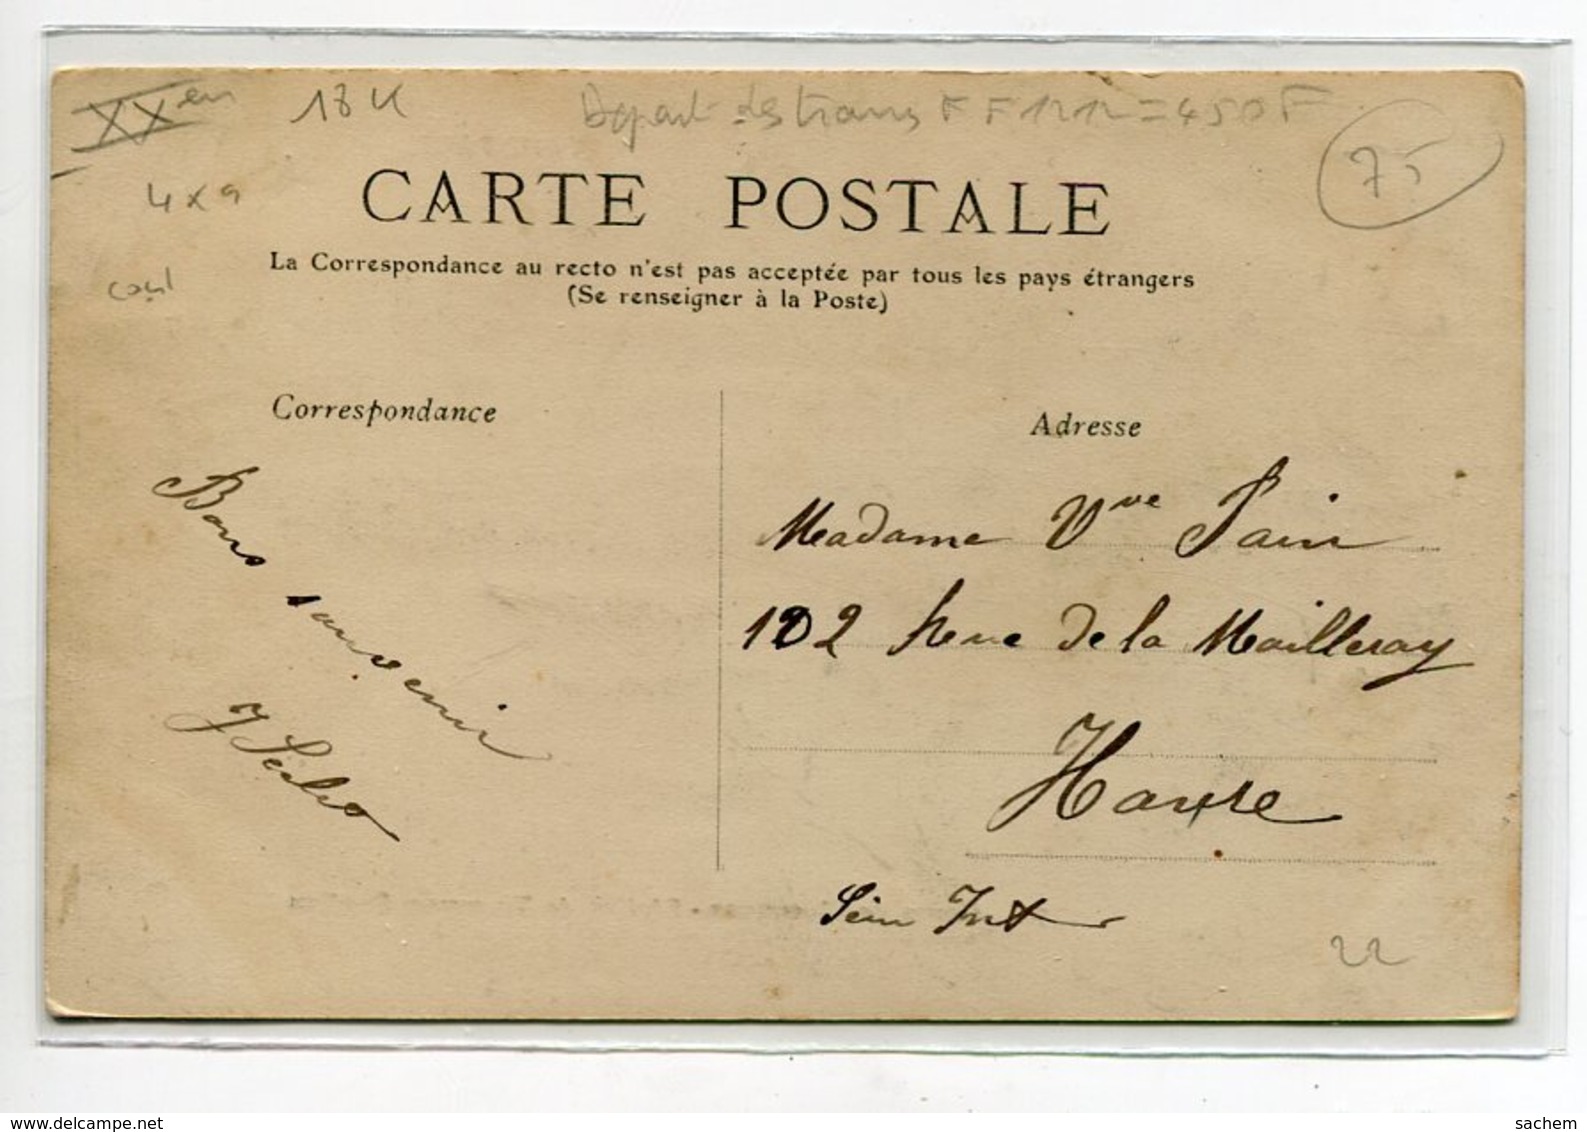 XX en
18 K
Depart des trams FF 1212 = 450 F
75
4 x 9
CARTE POSTALE
La Correspondance au recto n'est pas acceptée par tous les pays étrangers
(Se renseigner à la Poste)
Correspondance
Bons souvenir
Adresse
Madame Vve Pain
102 Rue de la Mailleray
Havre
Sein Inf
22
www.delcampe.net
sachem